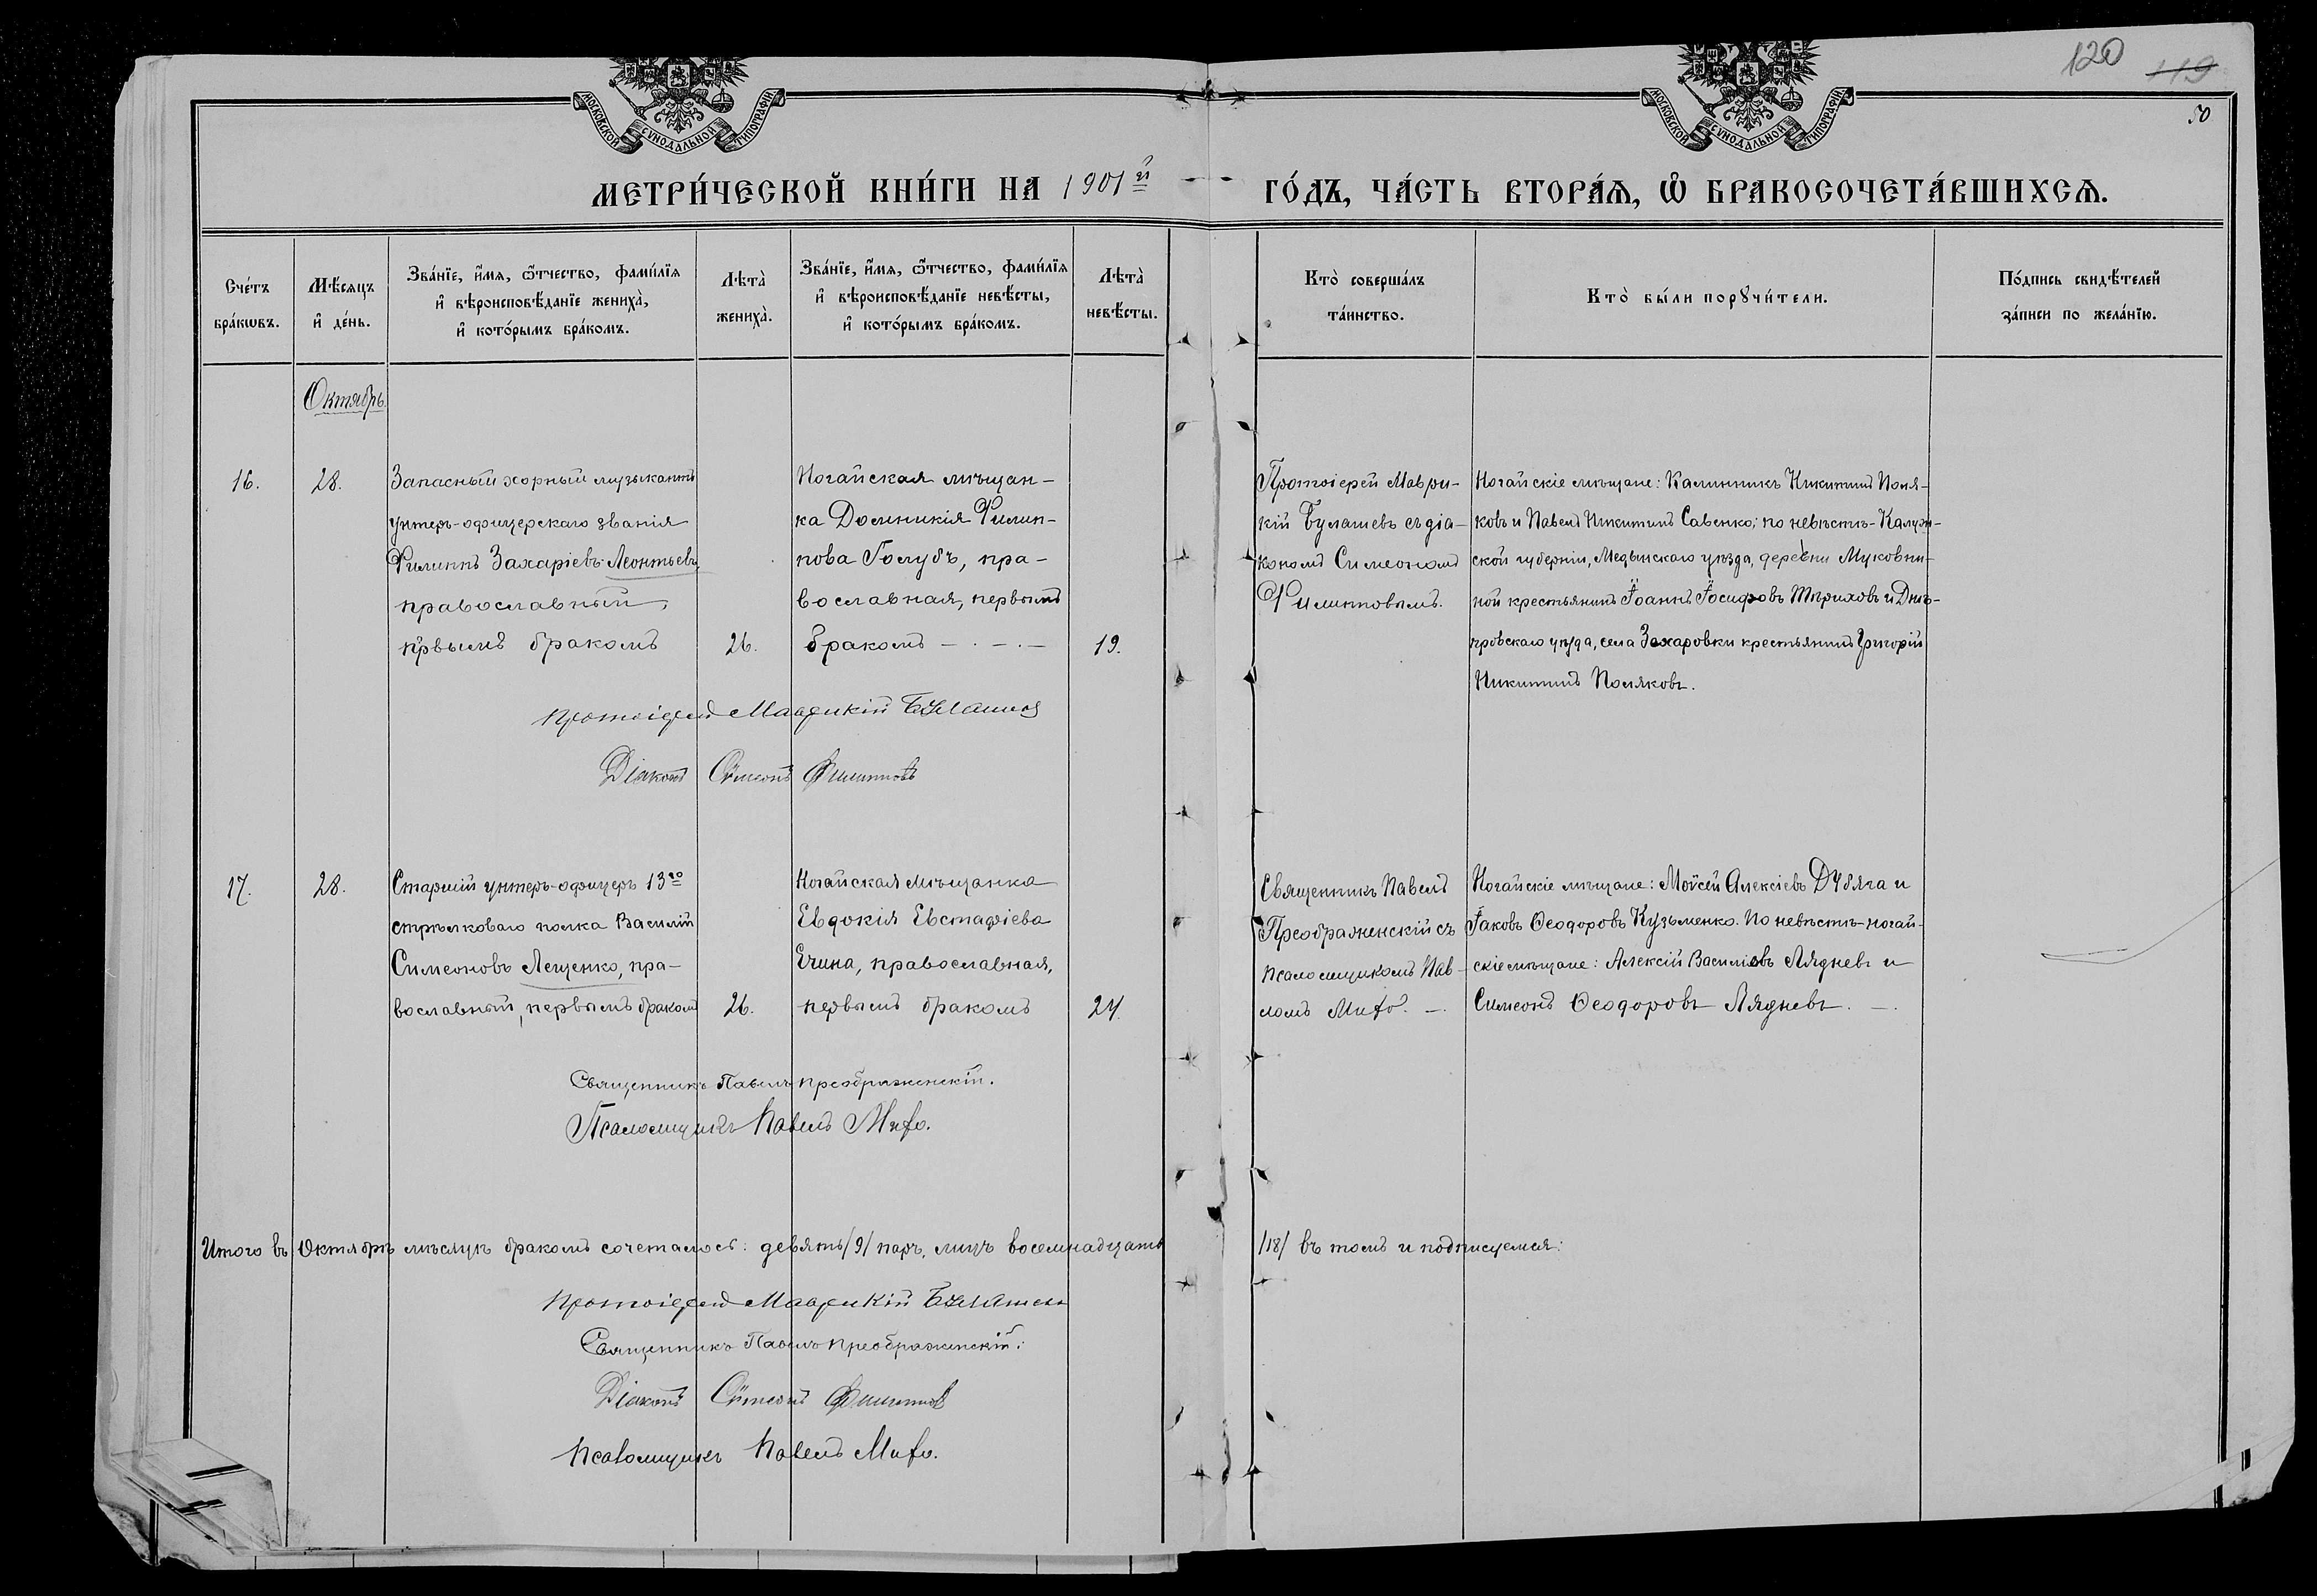 120 119
50
МОСКОВСКОЙ СѴНОДАЛЬНОЙ ТИПОГРАФІИ
МОСКОВСКОЙ СѴНОДАЛЬНОЙ ТИПОГРАФІИ
МЕТРИ́ЧЕСКОЙ КНИ́ГИ НА 1901й ГО́ДЪ, ЧА́СТЬ ВТОРА́Ѧ, Ѡ БРАКОСОЧЕТА́ВШИХСѦ.
Сче́тъ
бра́кѡвъ.
Мѣ́сяцъ
и҆ де́нь.
Зва́нїе, и҆́мя, ѻ҆́тчество, фамилі́я
и҆ вѣроисповѣ́данїе жениха̀,
и҆ кото́рымъ бра́комъ.
Лѣта̀
жениха̀.
Зва́нїе, и҆́мя, ѻ҆́тчество, фамилі́я
и҆ вѣроисповѣ́данїе невѣ́сты,
и҆ кото́рымъ бра́комъ.
Лѣта̀
невѣ́сты.
Кто̀ соверша́лъ
та́инство.
Кто̀ бы́ли порꙋчи́тели.
По́дпись свидѣ́телей
за́писи по жела́нїю.
Октябрь
16.
28.
Запасный хорный музыкантъ
унтеръ-офицерскаго званія
Филиппъ Захаріевъ Леонтьевъ,
православный,
первымъ бракомъ
26.
Ногайская мѣщан-
ка Домникія Филип-
пова Голубъ, пра-
вославная, первымъ
бракомъ — . — . —
19.
Протоіерей Маври-
кій Булашевъ съ діа-
кономъ Симеономъ
Филипповымъ.
Ногайскіе мѣщане: Калинникъ Никитинъ Поля-
ковъ и Павелъ Никитинъ Савенко; по невѣстѣ - Калуж-
ской губерніи, Медынскаго уѣзда, деревни Муковни-
ной крестьянинъ Іоаннъ Іосифовъ Тыриховъ и Днѣ-
провскаго уѣзда, села Захаровки крестьянинъ Григорій
Никитинъ Поляковъ.
Протоіерей Маврикій Булашевъ
Діаконъ Симеонъ Филипповъ
17.
28.
Старшій унтеръ-офицеръ 13го
стрѣлковаго полка Василій
Симеоновъ Лещенко, пра-
вославный, первымъ бракомъ
26.
Ногайская мѣщанка
Евдокія Евстафіева
Ечина, православная,
первымъ бракомъ
24.
Священникъ Павелъ
Преображенскій съ
псаломщикомъ Пав-
ломъ Мифо. —.
Ногайскіе мѣщане: Моѵсей Алексіевъ Дубяга и
Іаковъ Ѳеодоровъ Кузьменко. По невѣстѣ - ногай-
скіе мѣщане: Алексій Василіевъ Лядневъ и
Симеонъ Ѳеодоровъ Лядневъ. —.
Священникъ Павелъ Преображенскій.
Псаломщикъ Павелъ Мифо.
Итого въ Октябрѣ мѣсяцѣ бракомъ сочеталось: девять /9/ паръ, лицъ восемнадцать /18/ въ томъ и подписуемся:
Протоіерей Маврикій Булашевъ
Священникъ Павелъ Преображенскій.
Діаконъ Симеонъ Филипповъ
Псаломщикъ Павелъ Мифо.